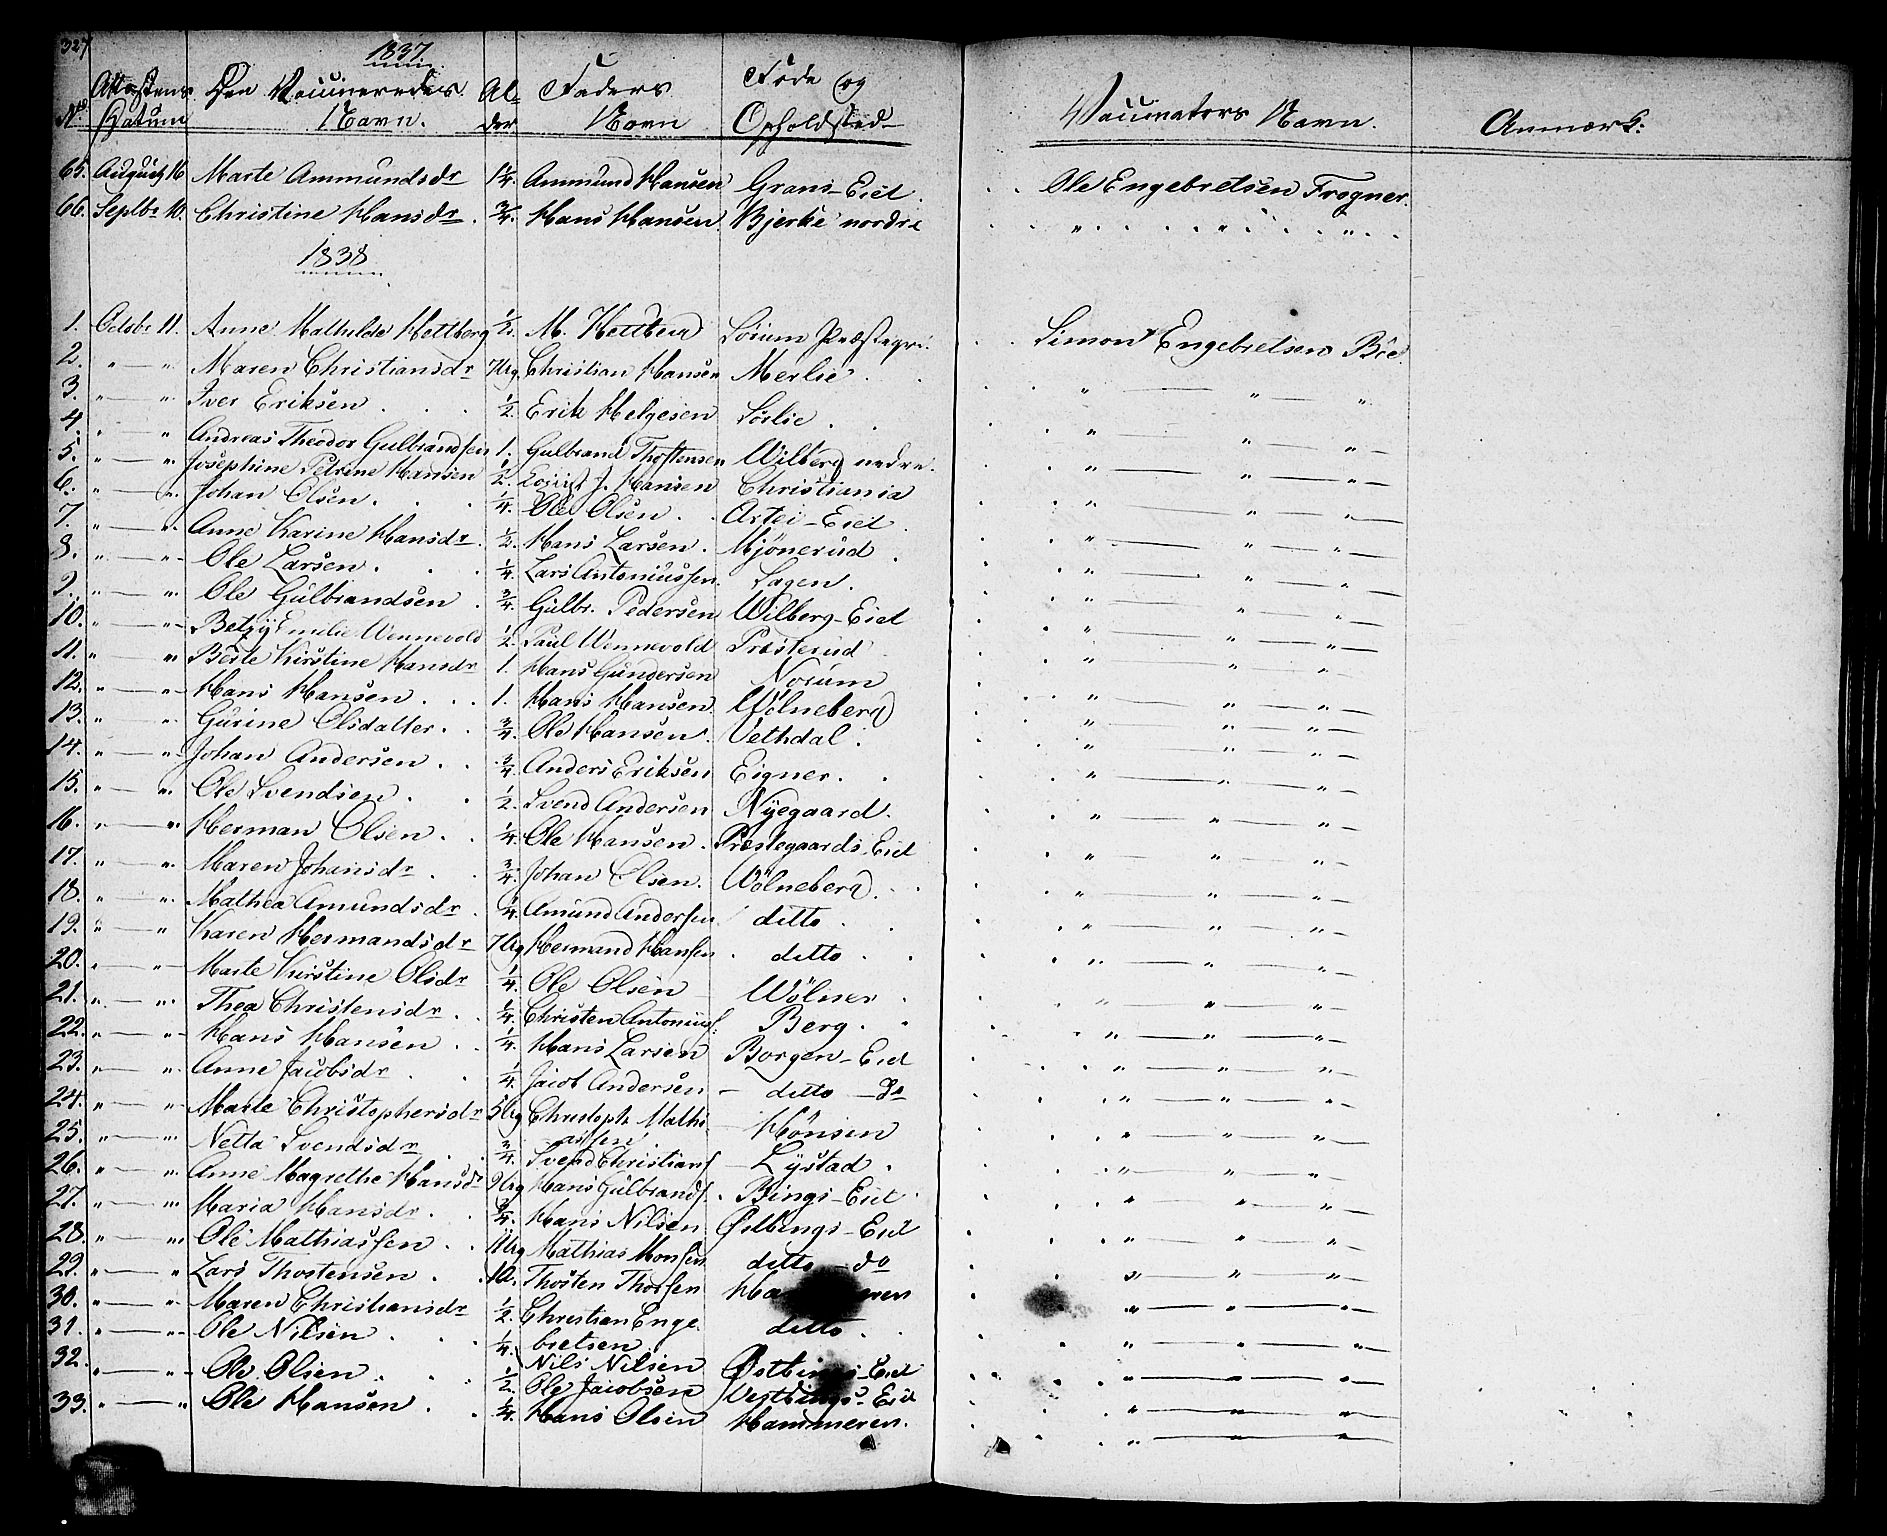 327
1837
No Attestens Datum Den Vaccineredes Navn. Alder Faders Navn Føde og Opholdsted Vaccinators Navn. Anmærk:
65. August 16 Marte Ammundsdr 1/4. Ammund Hansen Grans-Eiet. Ole Engebretsen Frogner.
66. Septbr 10. Christine Hansdr. 3/4. Hans Hansen Bjerke nordre " " "
1838
1. Octobr 11. Anne Mathilde Hettberg 1/2. M. Hettberg Sørum Simon Engebretsen Böe
2. " — " Maren Christiansdr 7 Ug Christian Hansen Merlie " — " — "
3. " — " Iver Eriksen 1/2. Erik Helgesen Sörlie " " — " —
4. " — " Andreas Theodor Gulbrandsen 1. Gulbrand Thostensen Wilberg nedre. " — " — " —
5. " — " Josephine Petrine Hansen 1/2. J. Hansen Christiania " — " — " —
6. " — " Johan Olsen 1/4. Ole Olsen Eiet " — " — " —
7. " — " Anne Karine Hansdr. 1/2. Hans Larsen. Mjönerud " — " — " —
8. " — " Ole Larsen 1/4. Lars Antoniussen. Lagen. " — " — " —
9. " — " Ole Gulbrandsen 3/4. Gulbr. Pedersen Wilberg-Eiet " — " — " —
10. " — " Betzy Emilie Wennevold 1/2. Paul Wennevold Præsterud " — " — " —
11. " — " Berte Kirstine Hansdr 1. Hans Gundersen Norum " — " — " —
12. " — " Hans Hansen 1. Hans Hansen Wölneberg " — " — " —
13. " — " Gurine Olsdatter. 3/4. Ole Hansen. Vethdal. " — " — " —
14. " — " Johan Andersen 3/4. Anders Eriksen Eigner. " — " — " —
15. " — " Ole Svendsen 1/2. Svend Andersen Nyegaard. " — " — " —
16. " — " Herman Olsen 1/4. Ole Hansen. Præstegaards-Eiet " — " — " —
17. " — " Maren Johansdr 3/4. Johan Olsen. Wölneberg. " — " — " —
18. " — " Mathea Amundsdr 1/4. Amund Andersen ditto " — " — " —
19. " — " Karen Hermandsdr 7 Ug Hermand Hansen ditto " — " — " —
20. " — " Marte Kirstine Olsdr 1/4. Ole Olsen Wölner " — " — " —
21. " — " Thea Christensdr 1/4. Christen Antoniuss: Berg. " — " — " —
22. " — " Hans Hansen 1/4. Hans Larsen Borgen-Eiet " — " — " —
23. " — " Anne Jacobsdr 1/4. Jacob Andersen — ditto — Do " — " — " —
24. " — " Marte Christophersdr 5 Ug Christoph. Mathi- Hönsen " — " — " —
assen
25. " — " Netta Svendsdr 3/4. Svend Christians — Lystad. " — " — " —
26. " — " Anne Magrethe Hansdr 9 Ug Hans Gulbrands. Bings-Eiet " — " — " —
27. " — " Maria Hansdr. 3/4. Hans Nilsen Østbings-Eiet " — " — " —
28. " — " Ole Mathiassen 11 Ug Mathias Monsen ditto do " — " — " —
29. " — " Lars Thostensen Thosten Thorsen " — " — " —
30. " — " Maren Christiansdr 1/2. Christian Enge- ditto " — " — " —
bretsen
31. " — " Ole Nilsen 1/4. Nils Nilsen Østbings-Eiet " — " — " —
32. " — " Ole Olsen 1/2. Ole Jacobsen Vestbings-Eiet " — " — " —
33. " — " Ole Hansen 1/4. Hans Olsen Hammeren. " — " — " —